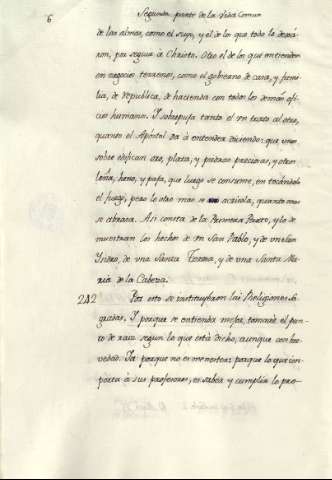 6
Segunda parte de la Vida Comun
de las almas, como el suyo, y el de los que todo lo dexáron,
por seguir a Christo. Otro el de los que entienden
en negocios terrenos, como el gobierno de casa, y familia,
de Republica, de hacienda con todos los demás oficios
humanos. Y sobrepuja tanto el un trato al otro,
quanto el Apóstol da á entender diciendo: que unos
sobre edifican oro, plata, y piedras preciosas, y otros
leña, heno, y paja, que luego se consume, en tocándolo
el fuego, pero lo otro mas se acrisola, quanto mas
se abrasa. Asi consta de la Primera Parte, y lo demuestran
los hechos de un San Pablo, y de un San
Ysidro, de una Santa Teresa, y de una Santa Maria
de la Cabeza.
242 Por esto se instituyeron las Religiones
Y porque se entienda mejor, tomaré el punto
de raiz segun lo que está dicho, aunque con brevedad.
Ya porque no es menester; porque lo que importa
á sus profesores, es saber y cumplir lo pro-